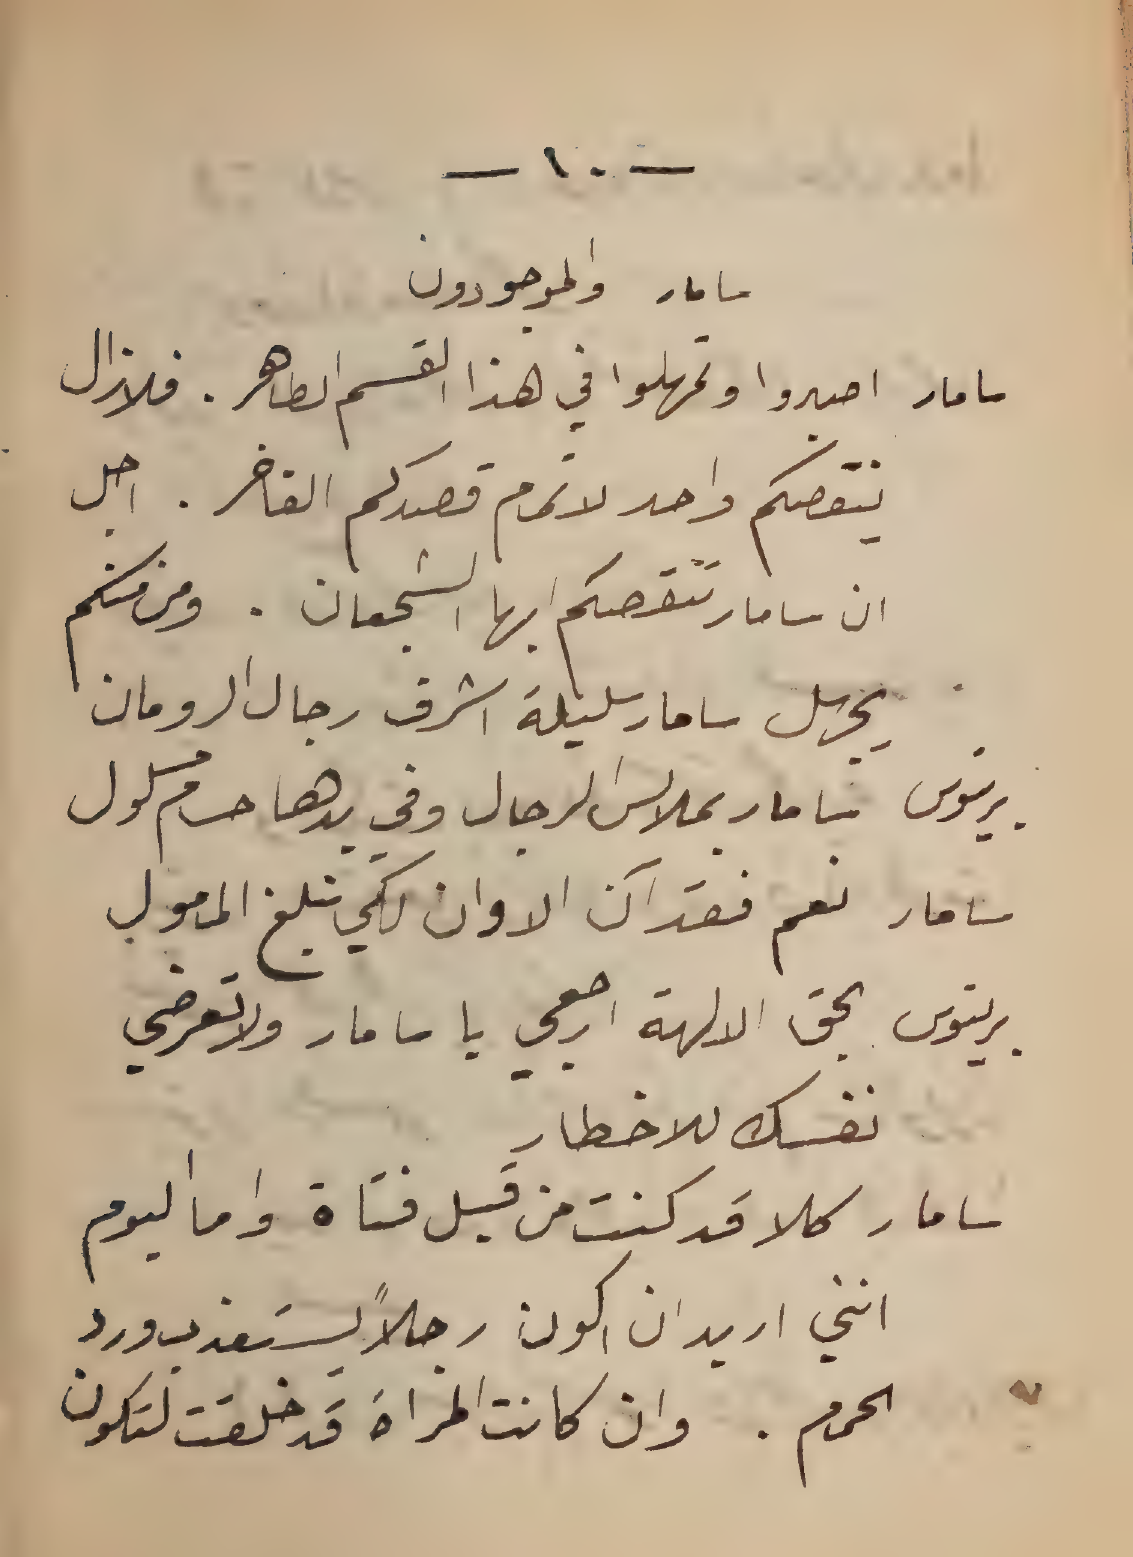 — ١٠ —
سامار والموجودون
سامار اصبروا وتمهلوا في هذا القسم الطاهر . فلازال
ينقصكم واحد لاتمام قصدكم الفاخر . اجل
ان سامار تنقصكم ايها الشجعان . ومن منكم
يجهل سامار سليلة اشرف رجال الرومان
بريتوس سامار بملابس الرجال وفي يدها حسام مسلول
سامار نعم فقد آن الاوان لكي نبلغ المامول
بريتوس بحق الالهة ارجعي يا سامار ولا تعرضي
نفسك للاخطار
سامار كلا قد كنت من قبل فتاة واما اليوم
انني اريد ان اكون رجلاً يستعذب ورد
الحمام . وان كانت المراة قد خلقت لتكون